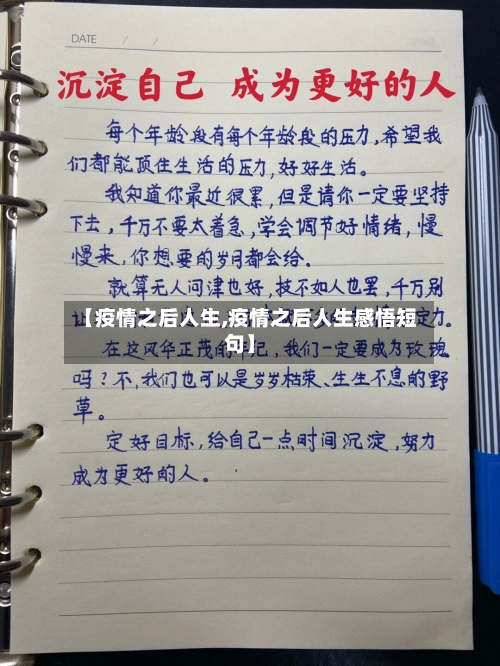 DATE / /
沉淀自己 成为更好的人
每个年龄段有每个年龄段的压力,希望我
们都能顶住生活的压力,好好生活。
我知道你最近很累,但是请你一定要坚持
下去,千万不要太着急,学会调节好情绪,慢
慢来,你想要的岁月都会给。
就算无人问津也好,技不如人也罢,千万别
让
定力。
【疫情之后人生,疫情之后人生感悟短
句】
在这风华正茂的年纪,我们一定要成为玫瑰
吗?不,我们也可以是岁岁枯荣、生生不息的野
草。
定好目标,给自己一点时间沉淀,努力
成为更好的人。